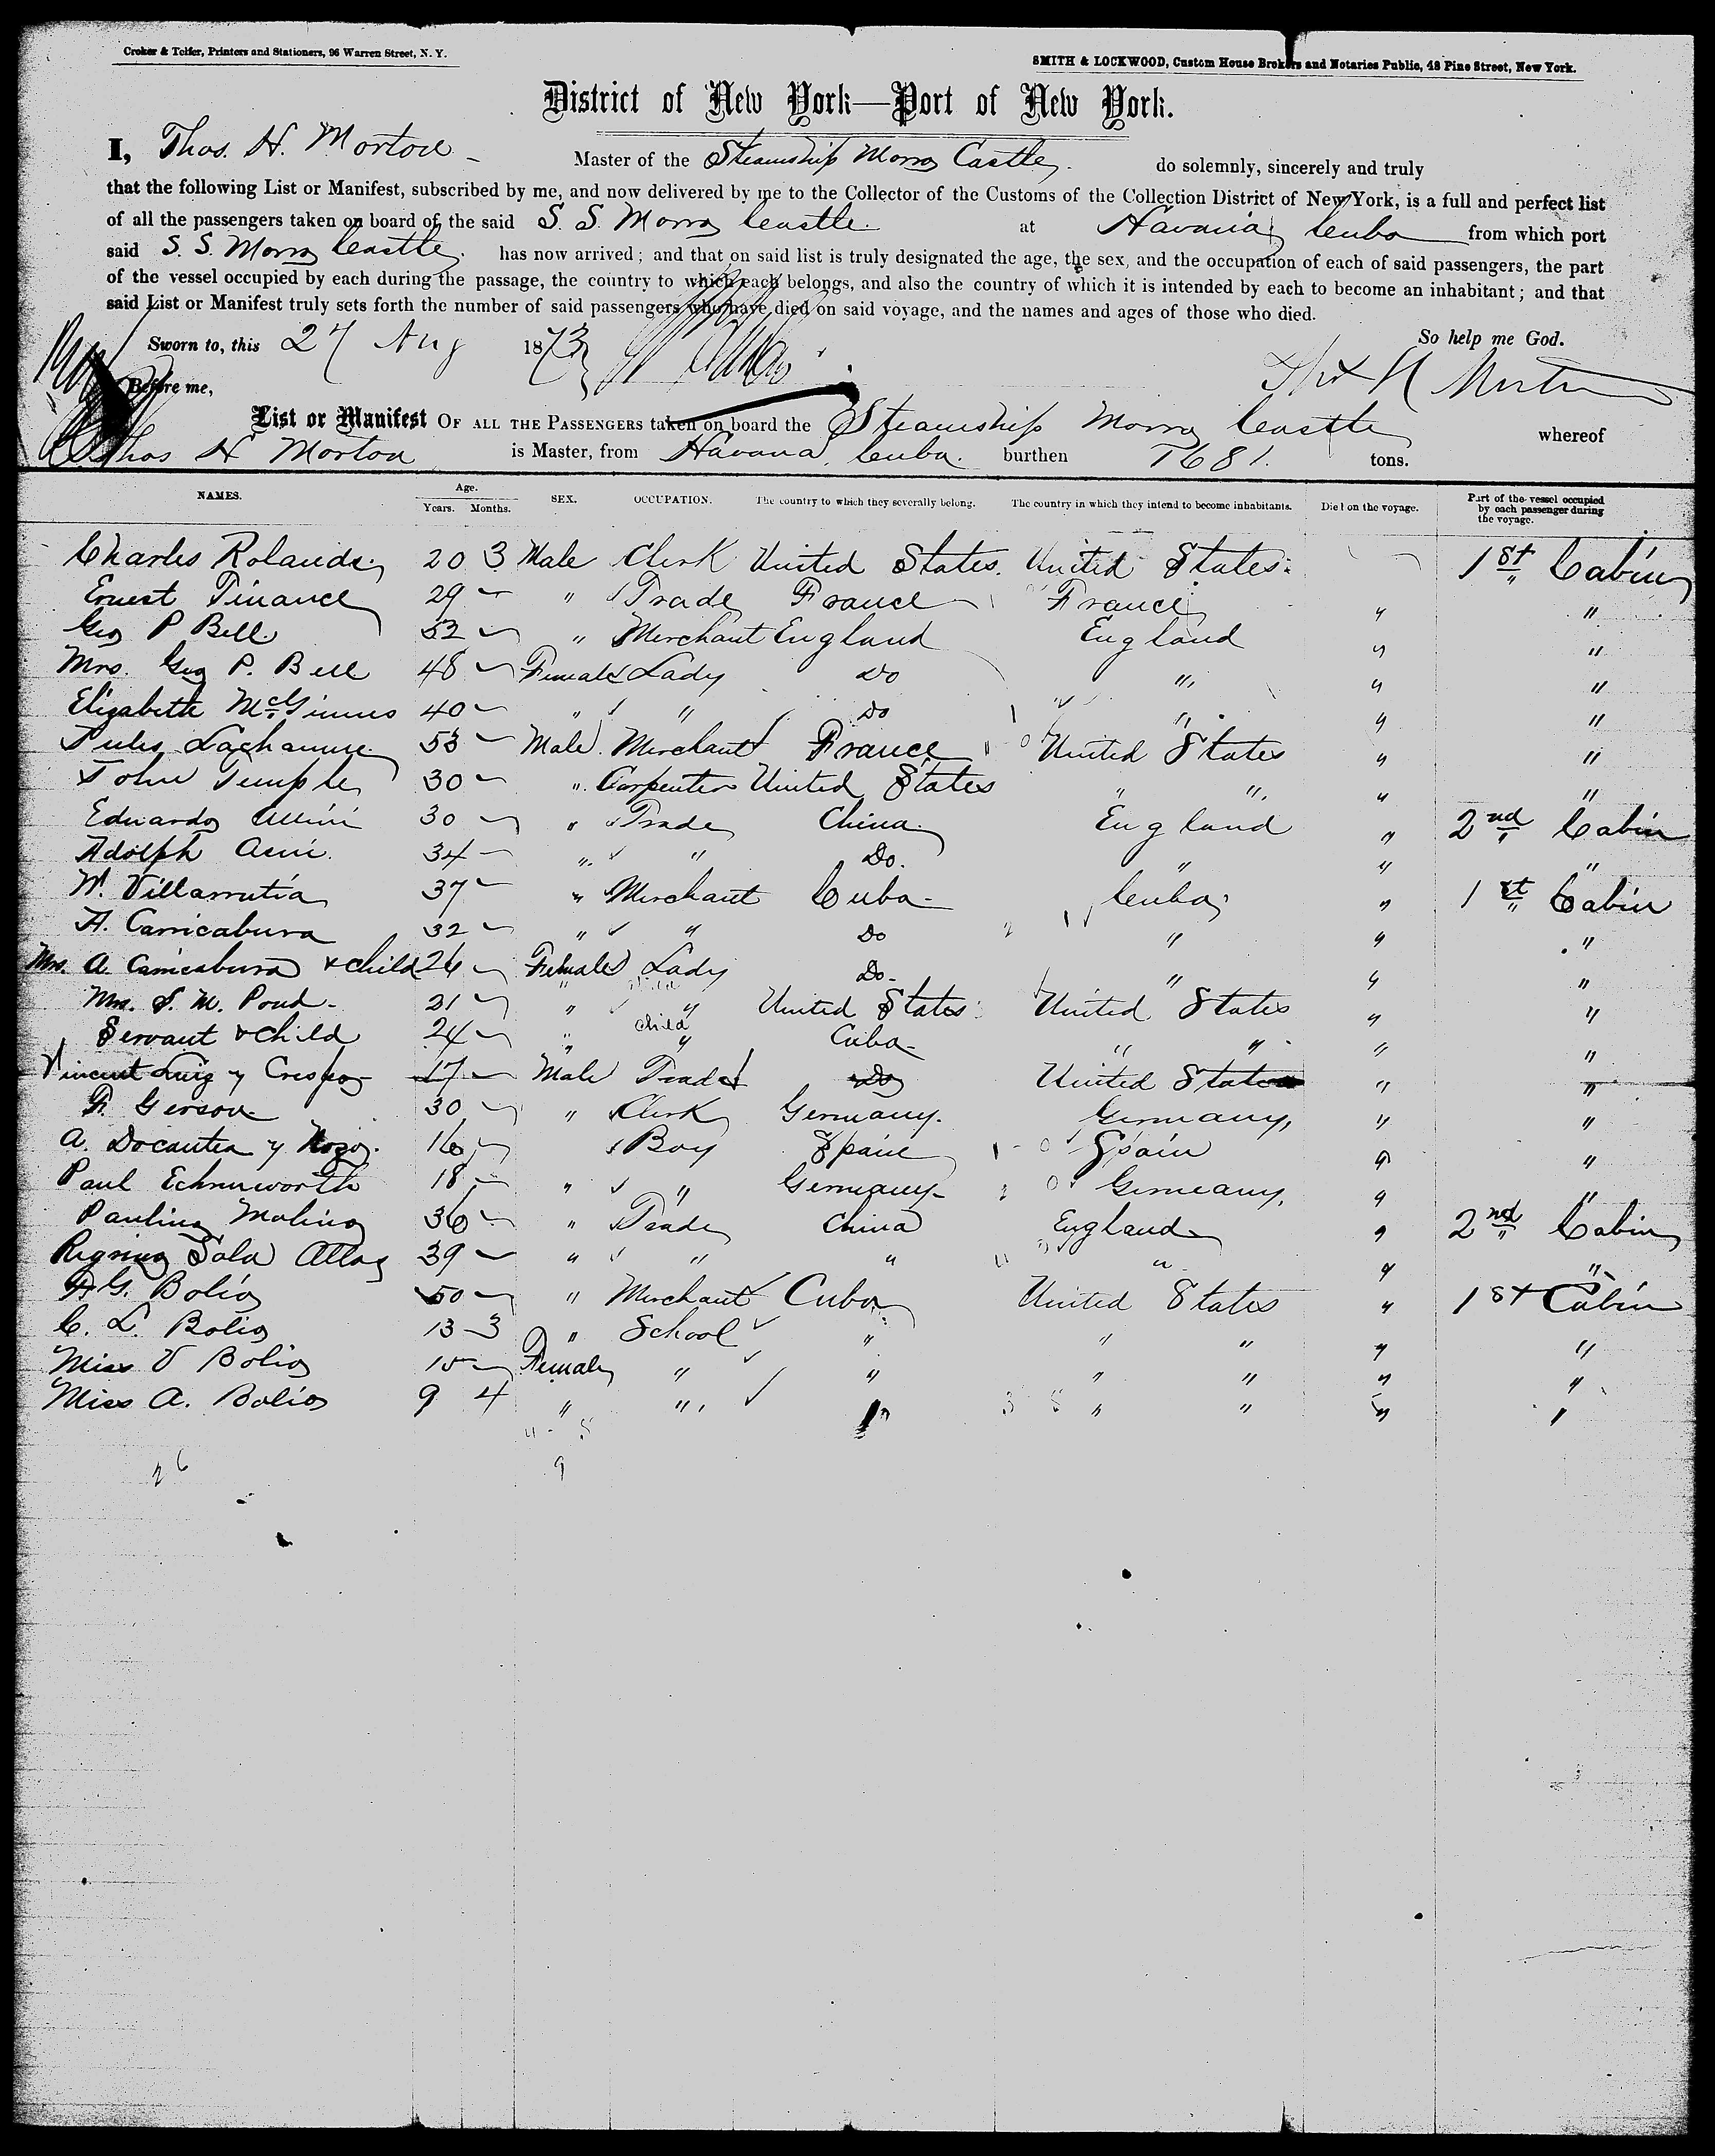 Croker & Telfer, Printers and Stationers, 96 Warren Street, N. Y.
SMITH & LOCKWOOD, Custom House Brokers and Notaries Public, 48 Pine Street, New York.
District of New York—Port of New York.
I, Thos. H. Morton Master of the Steamship Morro Castle. do solemnly, sincerely and truly
that the following List or Manifest, subscribed by me, and now delivered by me to the Collector of the Customs of the Collection District of New York, is a full and perfect list
of all the passengers taken on board of the said S. S. Morro Castle. at Havana, Cuba from which port
said S. S. Morro Castle. has now arrived; and that on said list is truly designated the age, the sex, and the occupation of each of said passengers, the part
of the vessel occupied by each during the passage, the country to which each belongs, and also the country of which it is intended by each to become an inhabitant; and that
said List or Manifest truly sets forth the number of said passengers who have died on said voyage, and the names and ages of those who died.
Sworn to, this 27 Aug 1873 So help me God.
Before me, Thos H Morton
List or Manifest OF ALL THE PASSENGERS taken on board the Steamship Morro Castle whereof
Thos H Morton is Master, from Havana, Cuba. burthen 1681. tons.
NAMES. Age. Years. Months. SEX. OCCUPATION. The country to which they severally belong. The country in which they intend to become inhabitants. Died on the voyage. Part of the vessel occupied by each passenger during the voyage.
Charles Rolands. 20 3 Male Clerk United States. United States. 1st Cabin
Ernest Finance 29 " Trade France France " "
Geo P Bell. 52 " Merchant England England " "
Mrs. Geo P. Bell 48 Female Lady Do " " "
Elizabeth McGinnis 40 " " Do " " "
Jules Lachaume. 53 Male. Merchant France United States " "
John Temple 30 " Carpenter United States " " " "
Eduardo 30 " Trade China England " 2nd Cabin
Adolph 34 " " Do. " " "
W. Villarrutia 37 " Merchant Cuba Cuba " 1st Cabin
A. Carricabura 32 " " Do " " "
Mrs. A. Carricabura & child 26 Female Lady Do " " "
Mrs. S. M. Pond 21 " " United States United States " "
Servant & child 24 " child " Cuba " " " "
Vincent Luis y Crespo 17 Male Trade Do United States " "
F. Gerson 30 " Clerk Germany. Germany, " "
A. Docantea y 16 Boy Spain Spain " "
Paul Echnuworth 18 " " Germany Germany, " "
Paulino Molino 36 " Trade China England " 2nd Cabin
Sala 39 " " " " " "
G. Bolio 50 " Merchant Cuba United States " 1st Cabin
C. L. Bolio 13 3 " School " " " " "
Miss V Bolio 10 Female " " " " " "
Miss A. Bolio 9 4 " " " " " " "
26
9